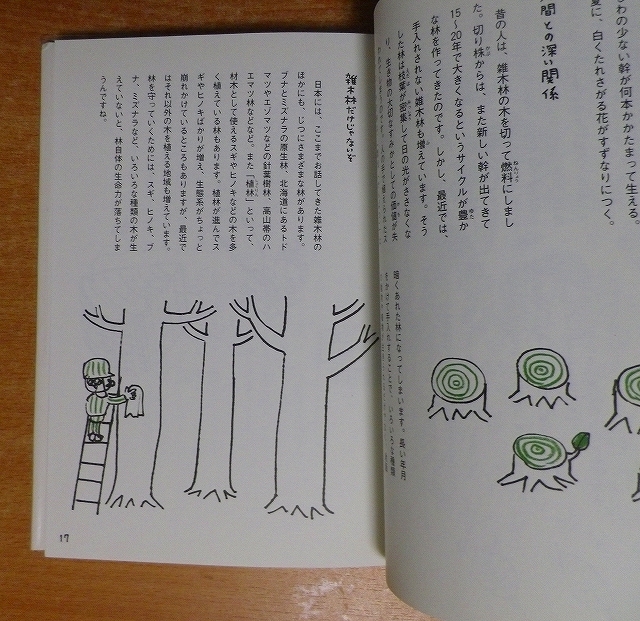 わの少ない幹が何本かかたまって生える。
夏に、白くたれさがる花がすずなりにつく。
間との深い関係
昔の人は、雑木林の木を切って燃料にしまし
た。切り株からは、また新しい幹が出てきて
15〜20年で大きくなるというサイクルが豊か
な林を作ってきたのです。しかし、最近では、
手入れされない雑木林も増えています。そう
した林は枝葉が密集して日の光がささなくな
り、生き物の大切なすみかとしての価値が失
暗くあれた林になってしまいます。長い年月
をかけて手入れすることで、いろいろな種類
雑木林だけじゃないぞ
日本には、ここまでお話してきた雑木林の
ほかにも、じつにさまざまな林があります。
ブナとミズナラの原生林、北海道にあるトド
マツやエゾマツなどの針葉樹林、高山帯のハ
エマツ林などなど。また「植林」といって、
材木として使えるスギやヒノキなどの木を多
く植えている林もあります。植林が進んでス
ギやヒノキばかりが増え、生態系がちょっと
崩れかけているところもありますが、最近で
はそれ以外の木を植える地域も増えています。
林を守っていくためには、スギ、ヒノキ、ブ
ナ、ミズナラなど、いろいろな種類の木が生
えていないと、林自体の生命力が落ちてしま
うんですね。
17